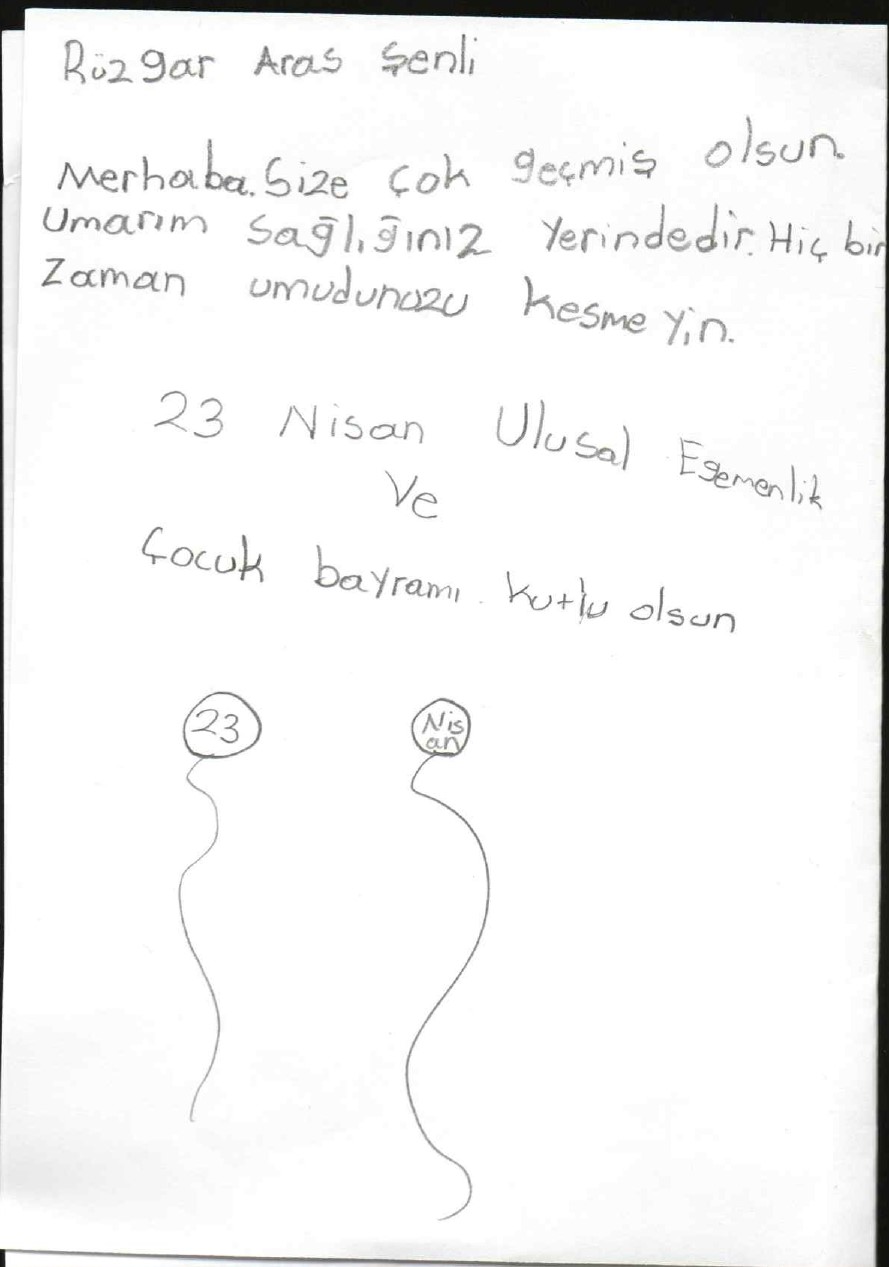 Rüzgar Aras Şenli
Merhaba. Size çok geçmiş olsun.
Umarım sağlığınız yerindedir. Hiç bir
Zaman umudunuzu kesmeyin.
23 Nisan Ulusal Egemenlik
Ve
Çocuk bayramı kutlu olsun
23
Nis
an